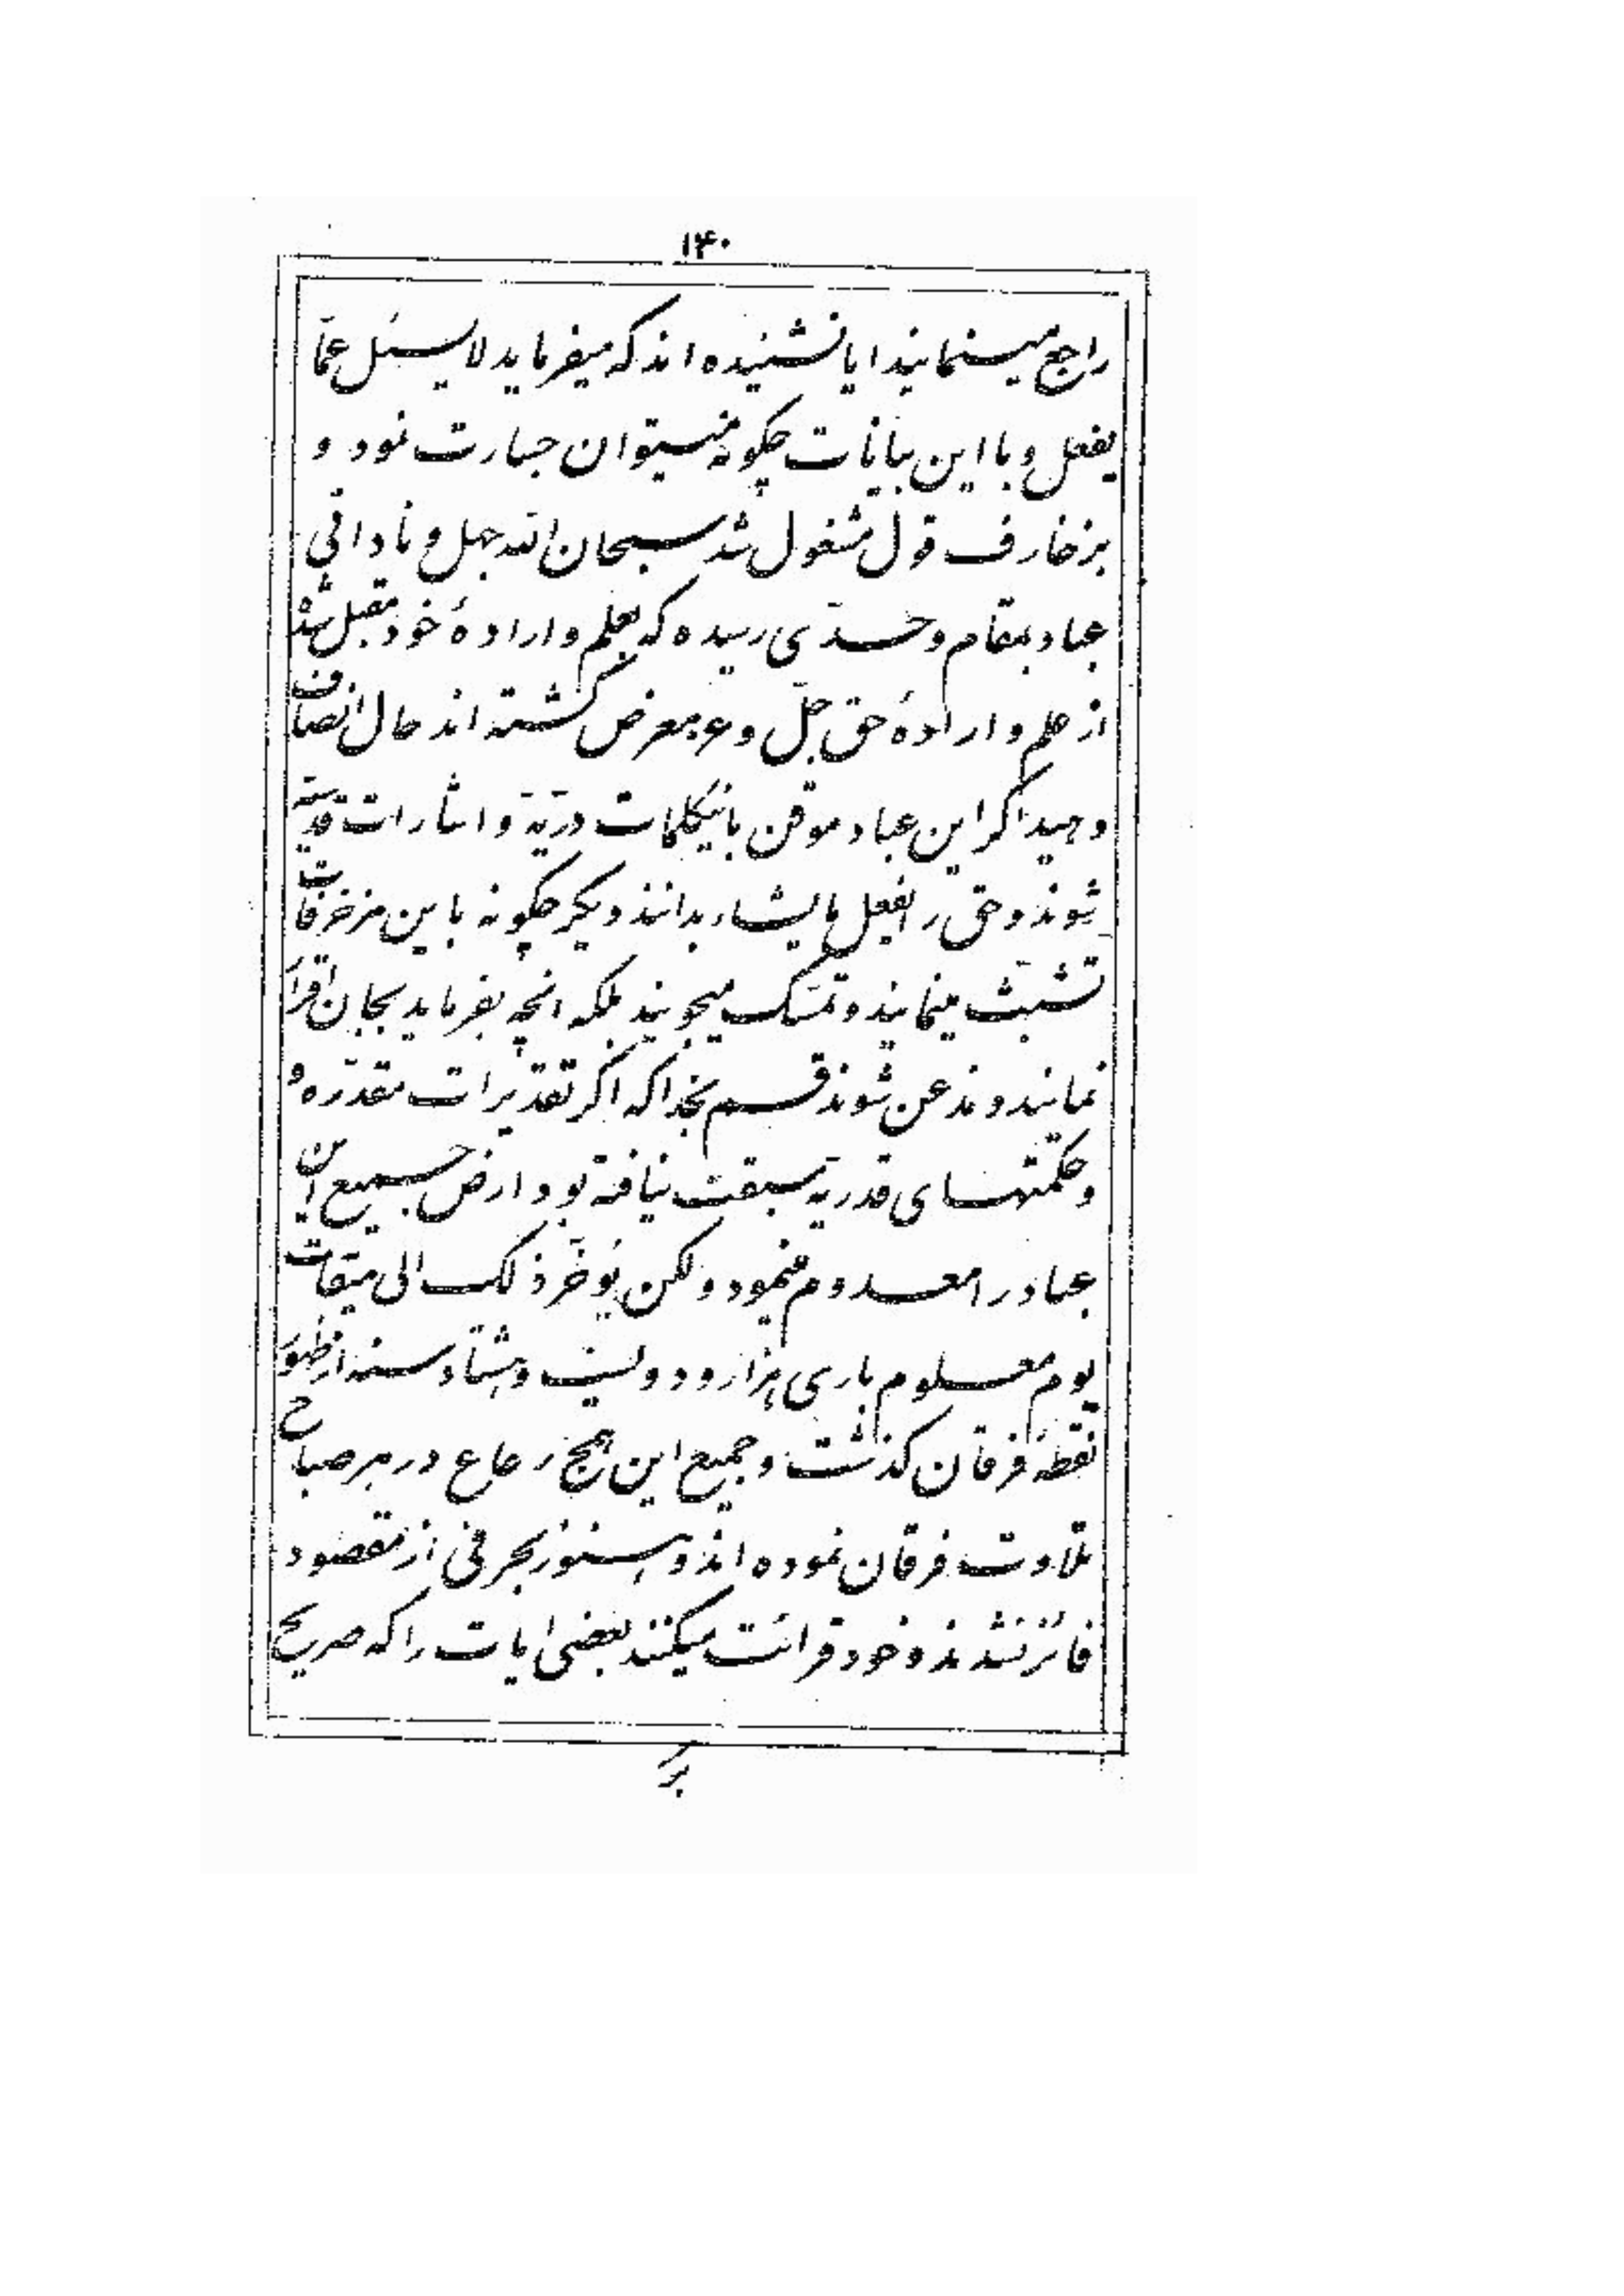 ۱۴۰
راجع مینمایند ایا نشنیده اند که میفرماید لا یسئل عمّا
یفعل و با این بیانات چکونه میتوان جسارت نمود و
بزخارف قول مشغول شد سبحان اللّه جهل و نادانی
عباد بمقام و حدّی رسیده که بعلم و ارادهٔ خود مقبل شده
از علم و ارادهٔ حق جلّ و عز معرض کشته اند حال انصاف
دهید اکر این عباد موقن باینکلمات درّیّه و اشارات قدسیّه
شوند و حق را یفعل ما یشاء بدانند دیکر چکونه باین مزخرفات
تشبّث مینمایند و تمسّک میجویند بلکه انچه بفرماید بجان اقرار
نمایند و مذعن شوند قسم بخدا که اکر تقدیرات مقدّره و
و حکمتهای قدریّه سبقت نیافته بود ارض جمیع این
عباد را معدوم مینمود و لکن یؤخّر ذلک الی میقات
یوم معلوم باری هزار و دویست و هشتاد سنه از ظهور
نقطهٔ فرقان کذشت و جمیع این همج رعاع در هر صباح
تلاوت فرقان نموده اند و هنوز بحرفی از مقصود
فائز نشدند و خود قرائت میکنند بعضی ایات را که صریح
بر